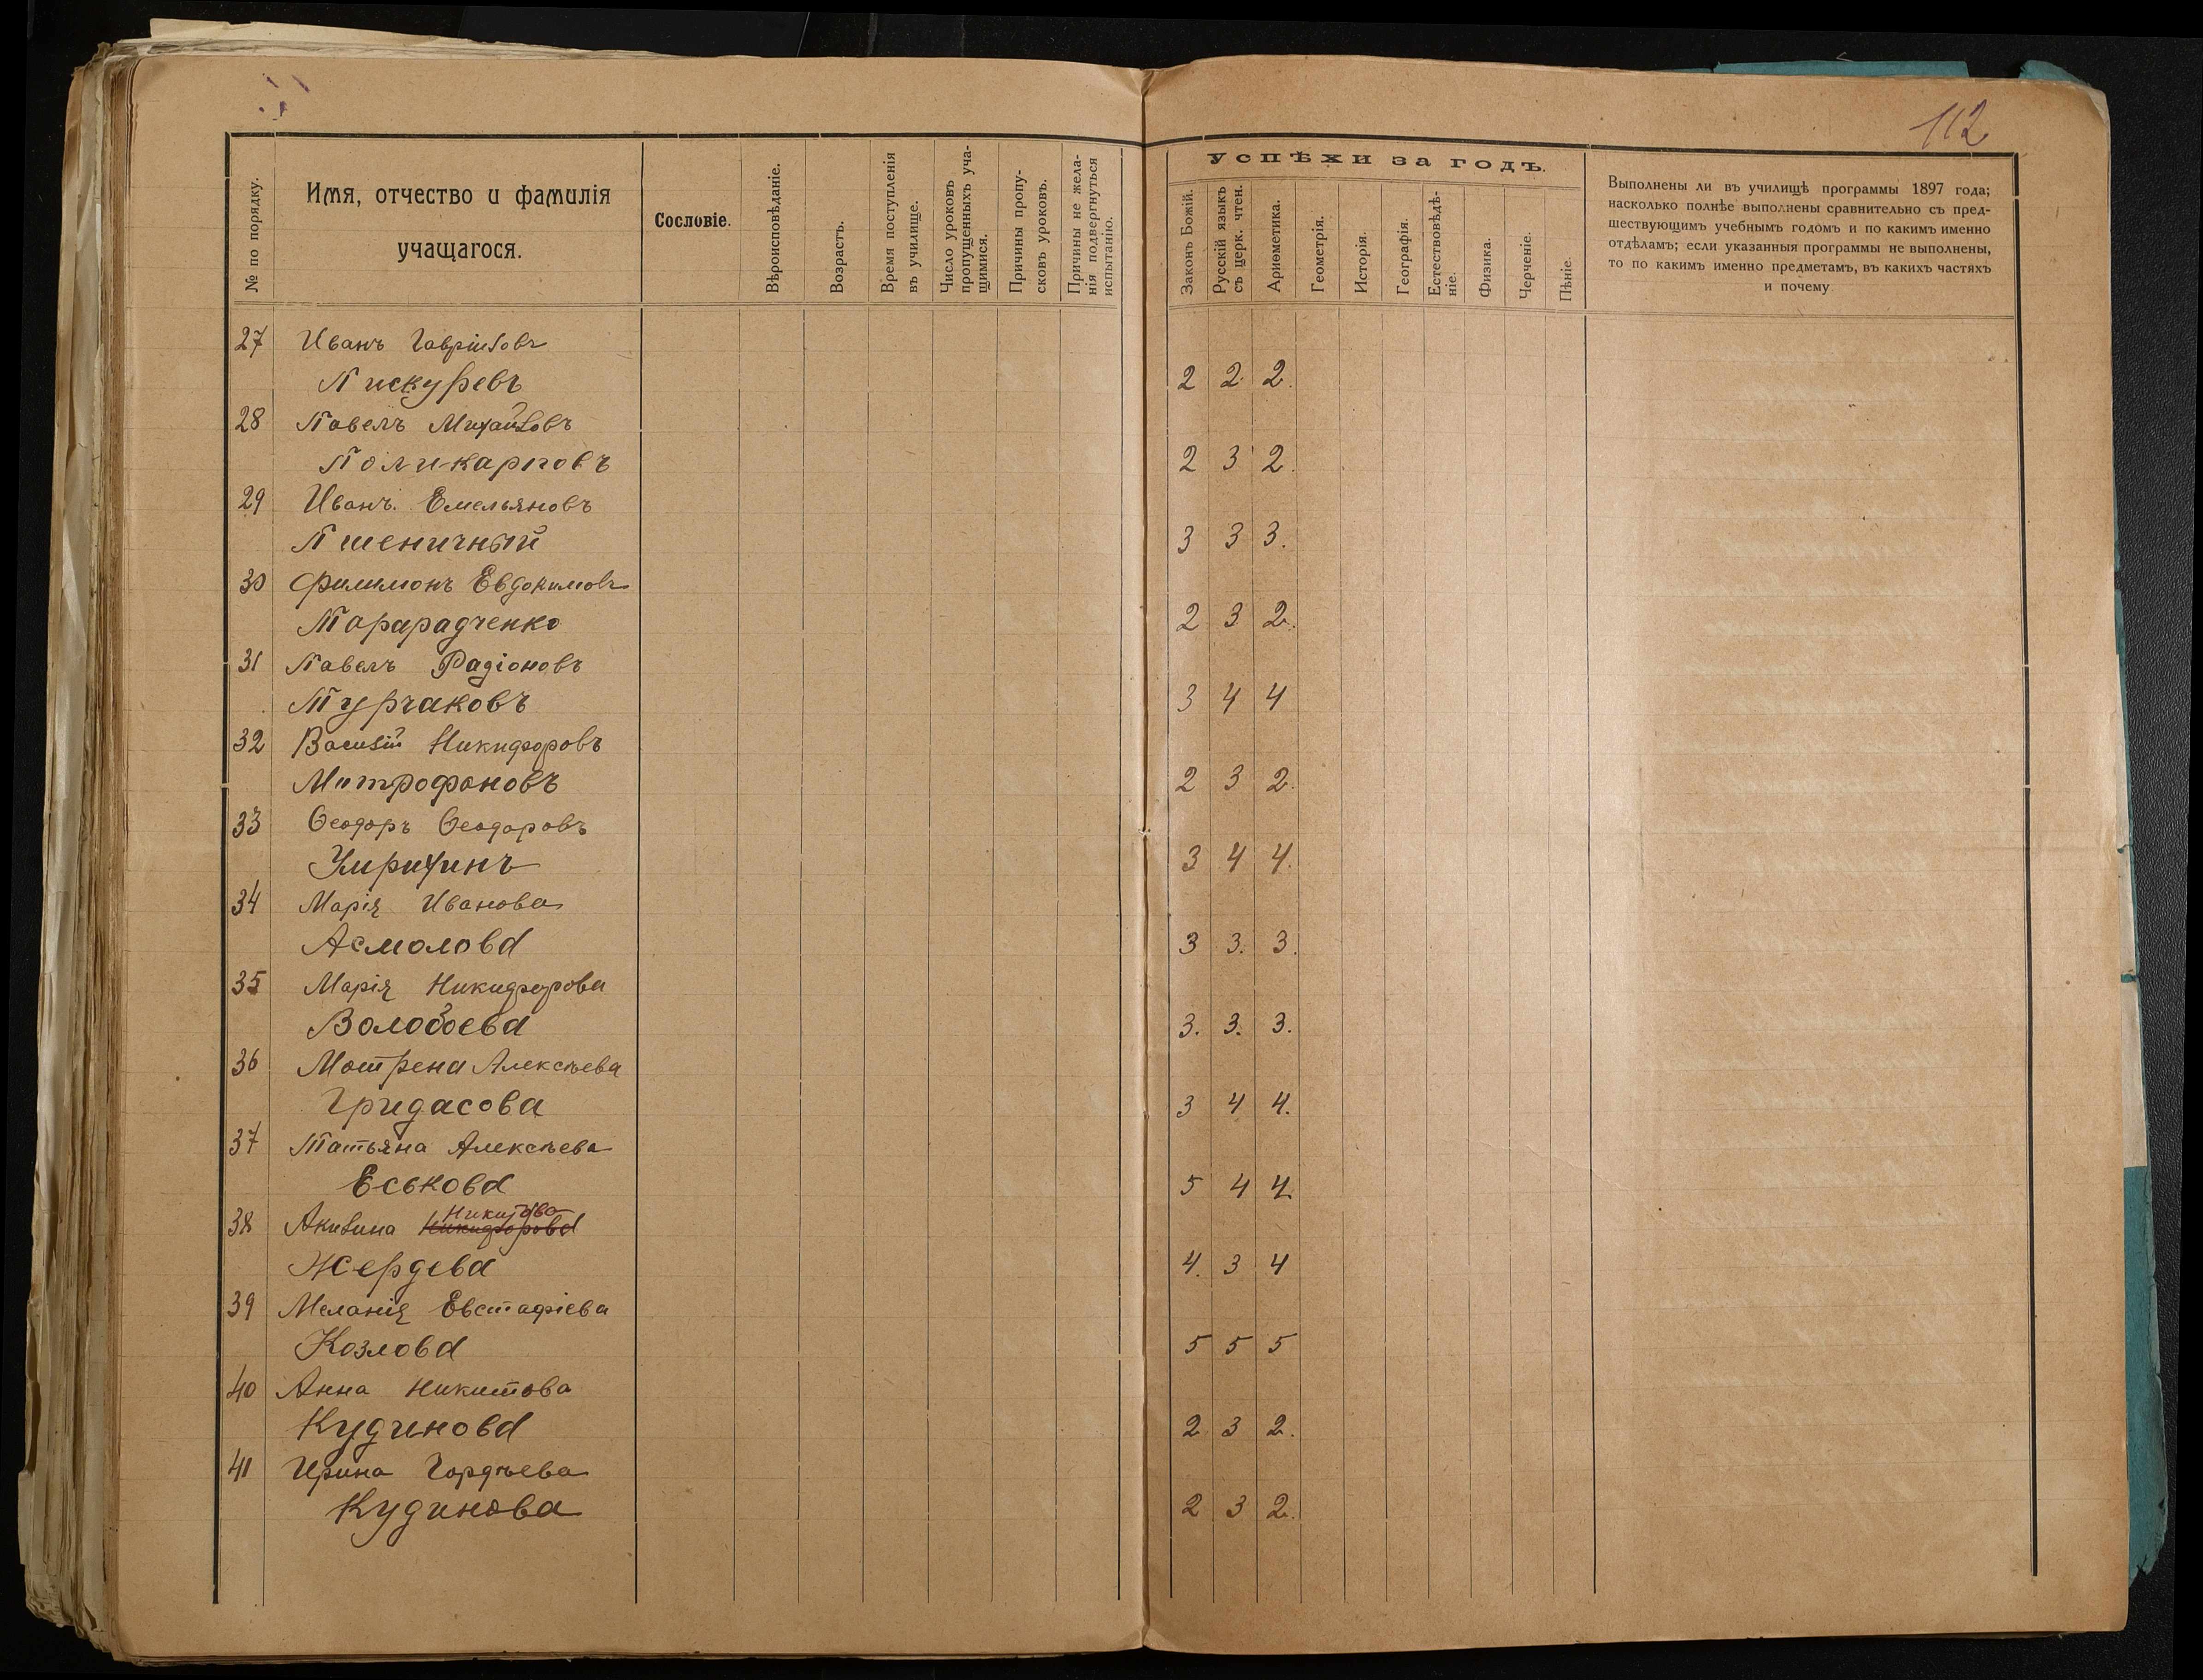 112
№ по порядку.
Имя, отчество и фамилія
учащагося.
Сословіе.
Вѣроисповѣданіе.
Возрастъ.
Время поступленія
въ училище.
Число уроковъ
пропущенныхъ уча-
щимися.
Причины пропу-
сковъ уроковъ.
Причины не жела-
нія подвергнуться
испытанію.
Успѣхи за годъ.
Законъ Божій.
Русскій языкъ
съ церк. чтен.
Ариѳметика.
Геометрія.
Исторія.
Географія.
Естествовѣдѣ-
ніе.
Физика.
Черченіе.
Пѣніе.
Выполнены ли въ училищѣ программы 1897 года;
насколько полнѣе выполнены сравнительно съ пред-
шествующимъ учебнымъ годомъ и по какимъ именно
отдѣламъ; если указанныя программы не выполнены,
то по какимъ именно предметамъ, въ какихъ частяхъ
и почему
27 Иванъ Гавріиловъ
Пискуревъ 2 2 2.
28 Павелъ Михайловъ
Поликарповъ 2 3 2.
29 Иванъ. Емельяновъ
Пшеничный 3 3 3.
30 Филимонъ Евдокимовъ
Тарарадченко 2 3 2.
31 Павелъ Радіоновъ
Турчаковъ 3 4 4
32 Василій Никифоровъ
Митрофановъ 2 3 2.
33 Ѳеодоръ Ѳеодоровъ
Умрихинъ 3 4 4.
34 Марія Иванова
Асмолова 3 3. 3.
35 Марія Никифорова
Волобоева 3. 3. 3.
36 Мотрена Алексѣева
Гридасова 3 4 4.
37 Татьяна Алексѣева
Еськова 5 4 4.
Никитова
38 Акилина Никифорова
Жердева 4. 3 4
39 Меланія Евстафіева
Козлова 5 5 5
40 Анна Никитова
Кудинова 2 3 2.
41 Ирина Гордѣева
Кудинова 2 3 2.